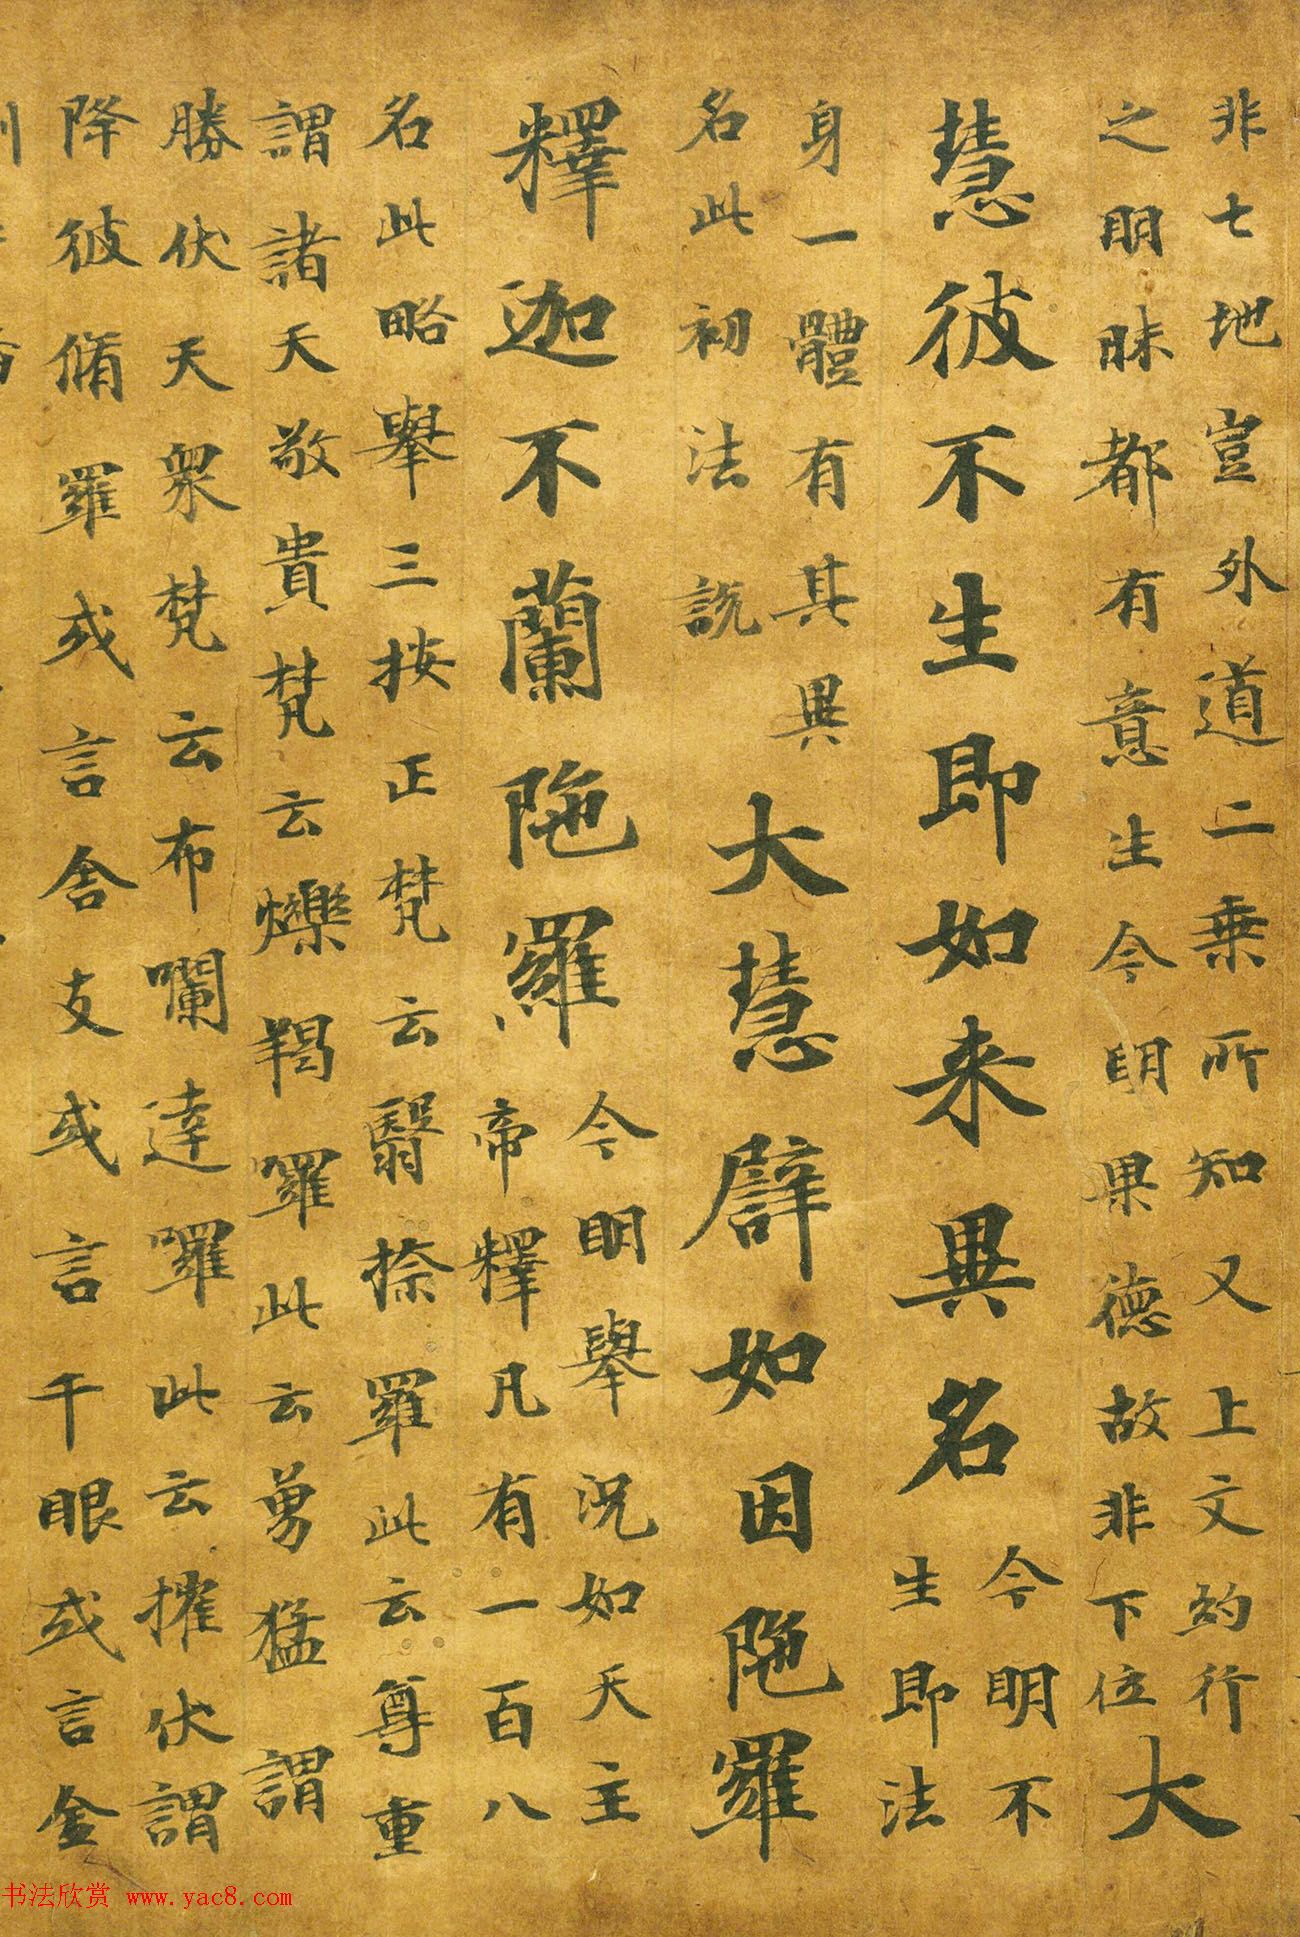 非七地豈外道二乗所知又上文約行
之明昧都有意生今明果德故非下位
大
慧彼不生即如来異名
今明不
生即法
身一體有其異
名此初法說
大慧譬如因陁羅
釋迦不蘭陁羅
今明舉况如天主
帝釋凡有一百八
名此略舉三按正梵云翳捺羅此云尊重
謂諸天敬貴梵云爍羯囉此云勇猛謂
勝伏天衆梵云布囒達囉此云摧伏謂
降彼脩羅或言舍支或言千眼或言金
书法欣赏 www.yac8.com